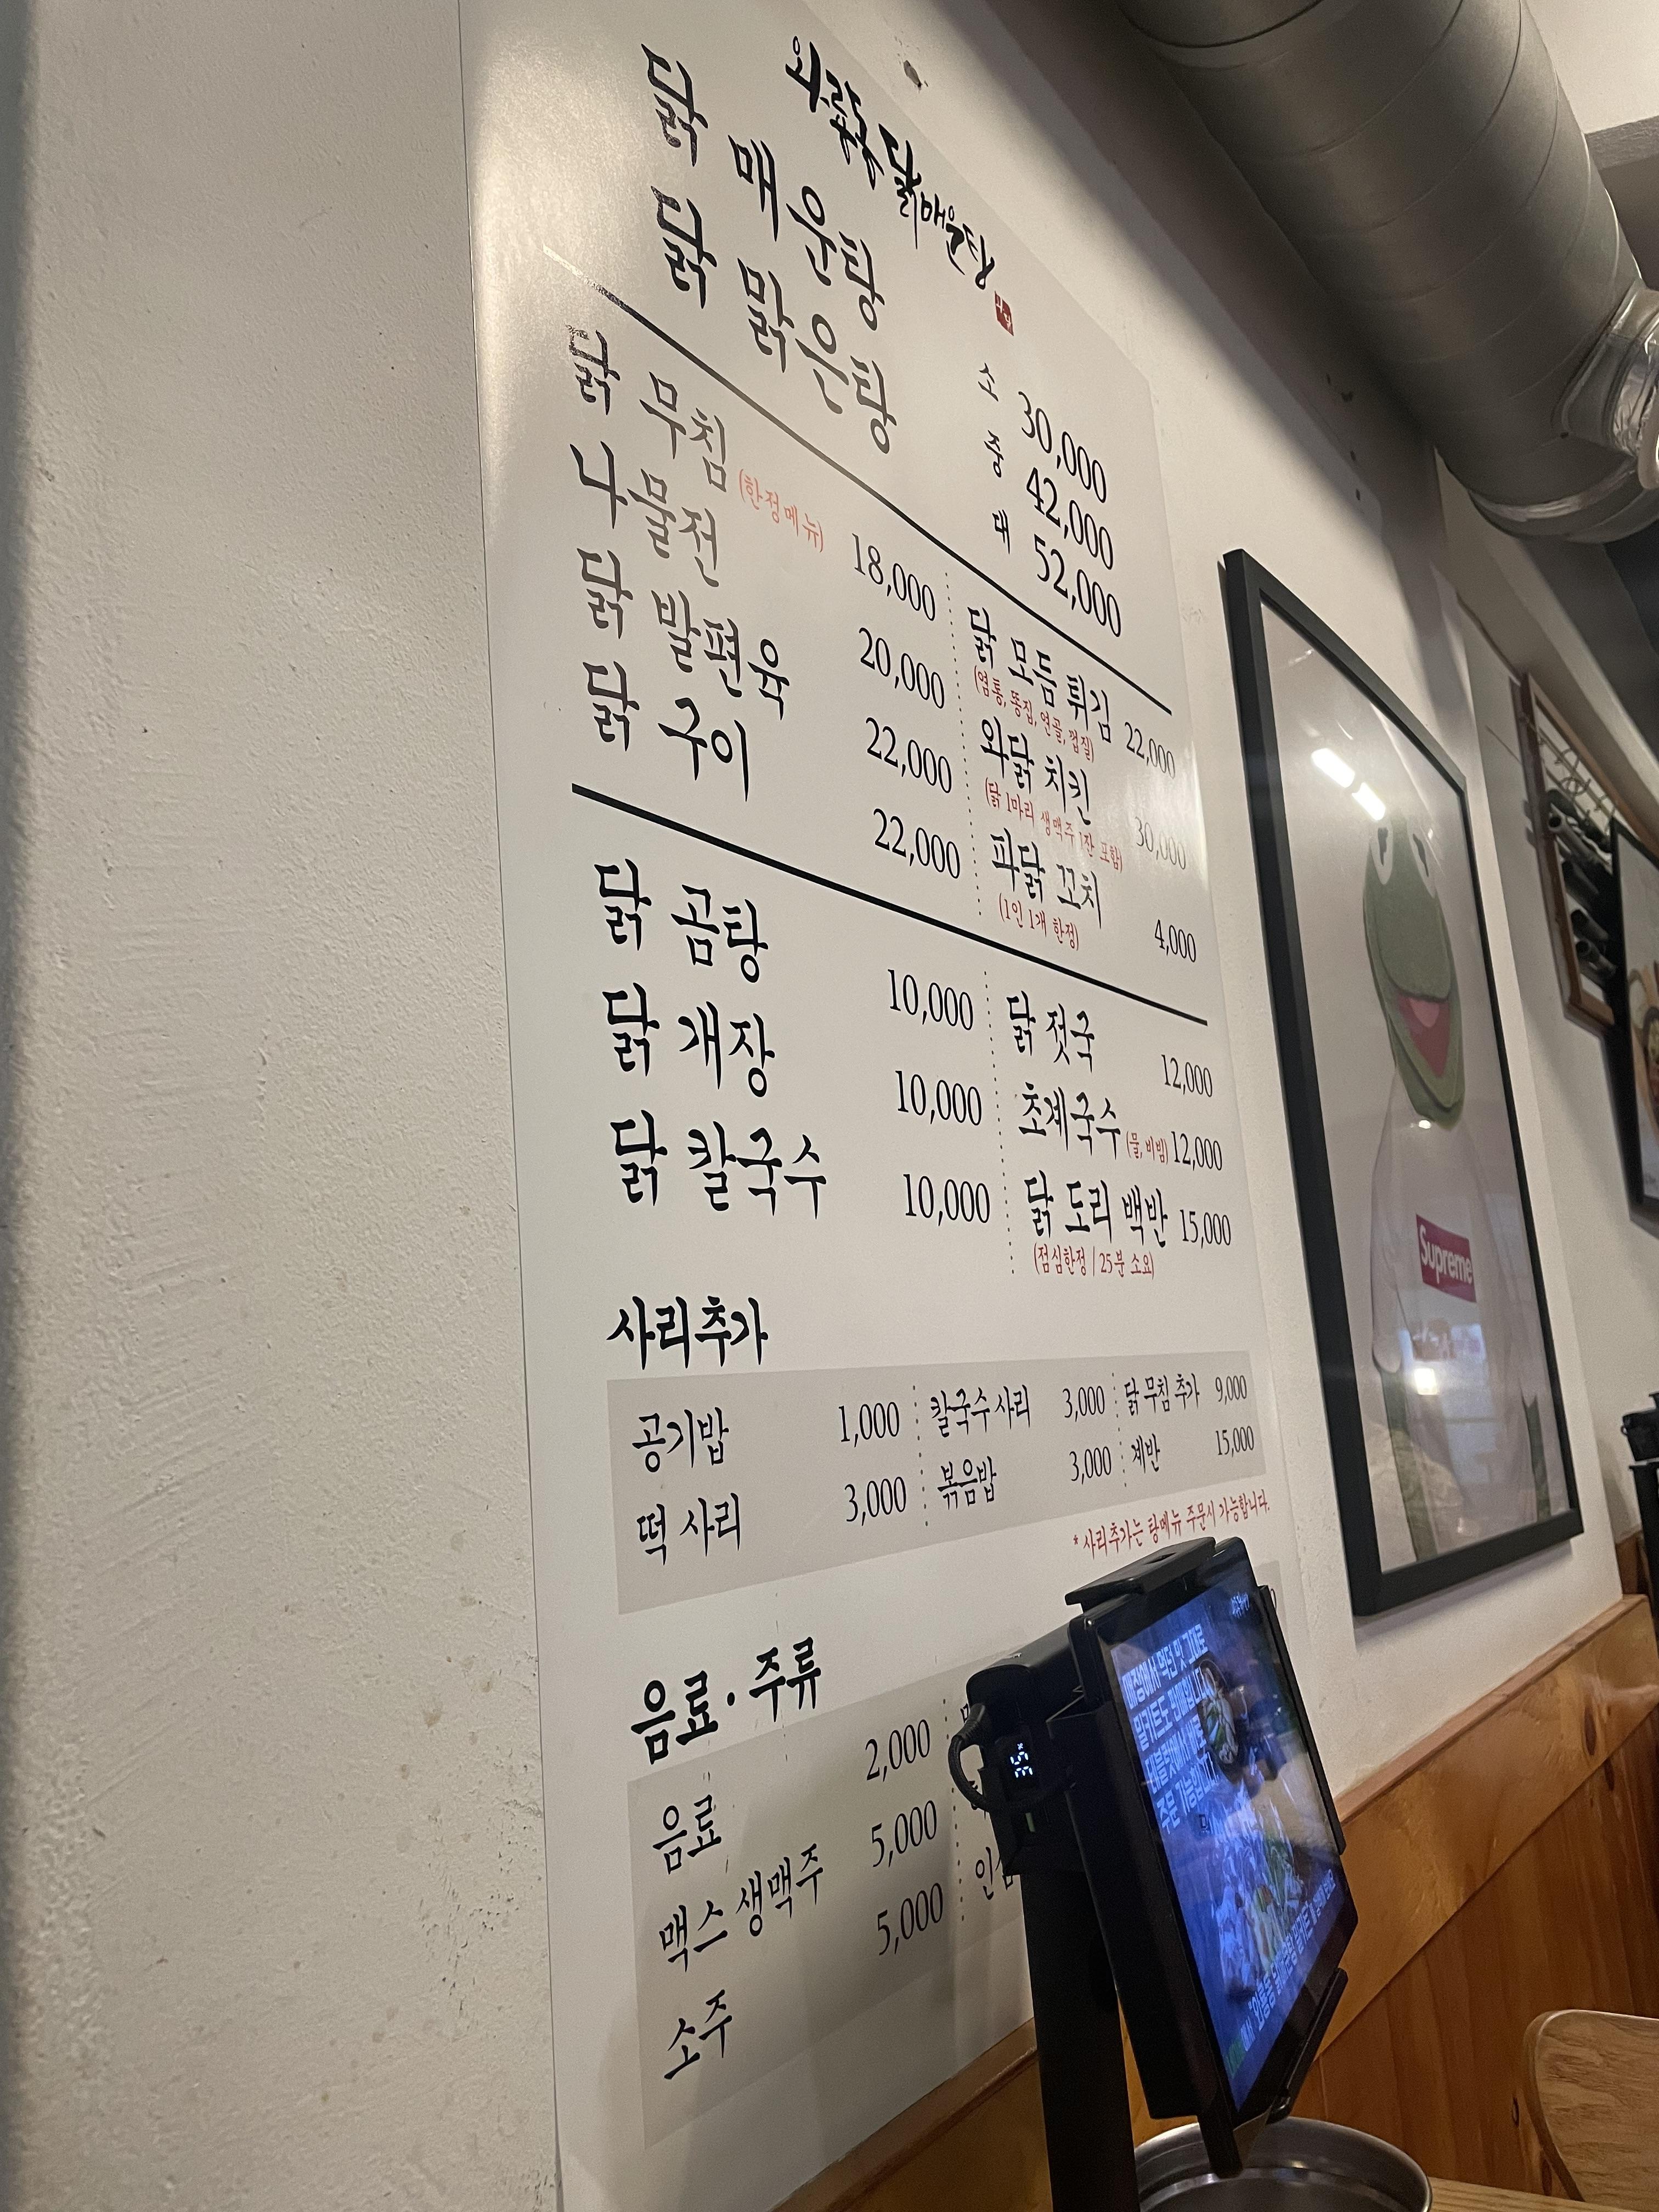 와룡동 닭매운탕
닭 매운탕
닭 맑은탕
소 30,000
중 42,000
대 52,000
닭 무침 (한정메뉴) 18,000
나물전 20,000
닭 발편육 22,000
닭 구이 22,000
닭 모듬 튀김 22,000
(염통, 똥집, 연골, 껍질)
와닭 치킨 30,000
(닭 1마리 생맥주 1잔 포함)
파닭 꼬치 4,000
(1인 1개 한정)
닭 곰탕 10,000
닭 개장 10,000
닭 칼국수 10,000
닭 젓국 12,000
초계국수 (물, 비빔) 12,000
닭 도리 백반 15,000
(점심한정 / 25분 소요)
사리추가
공기밥 1,000
떡 사리 3,000
칼국수 사리 3,000
볶음밥 3,000
닭 무침 추가 9,000
계반 15,000
* 사리추가는 탕메뉴 주문시 가능합니다.
음료 · 주류
음료 2,000
맥스 생맥주 5,000
소주 5,000
매장에서 먹던 맛 그대로
밀키트도 판매합니다
테블릿에서
주문 가능합니다
Supreme